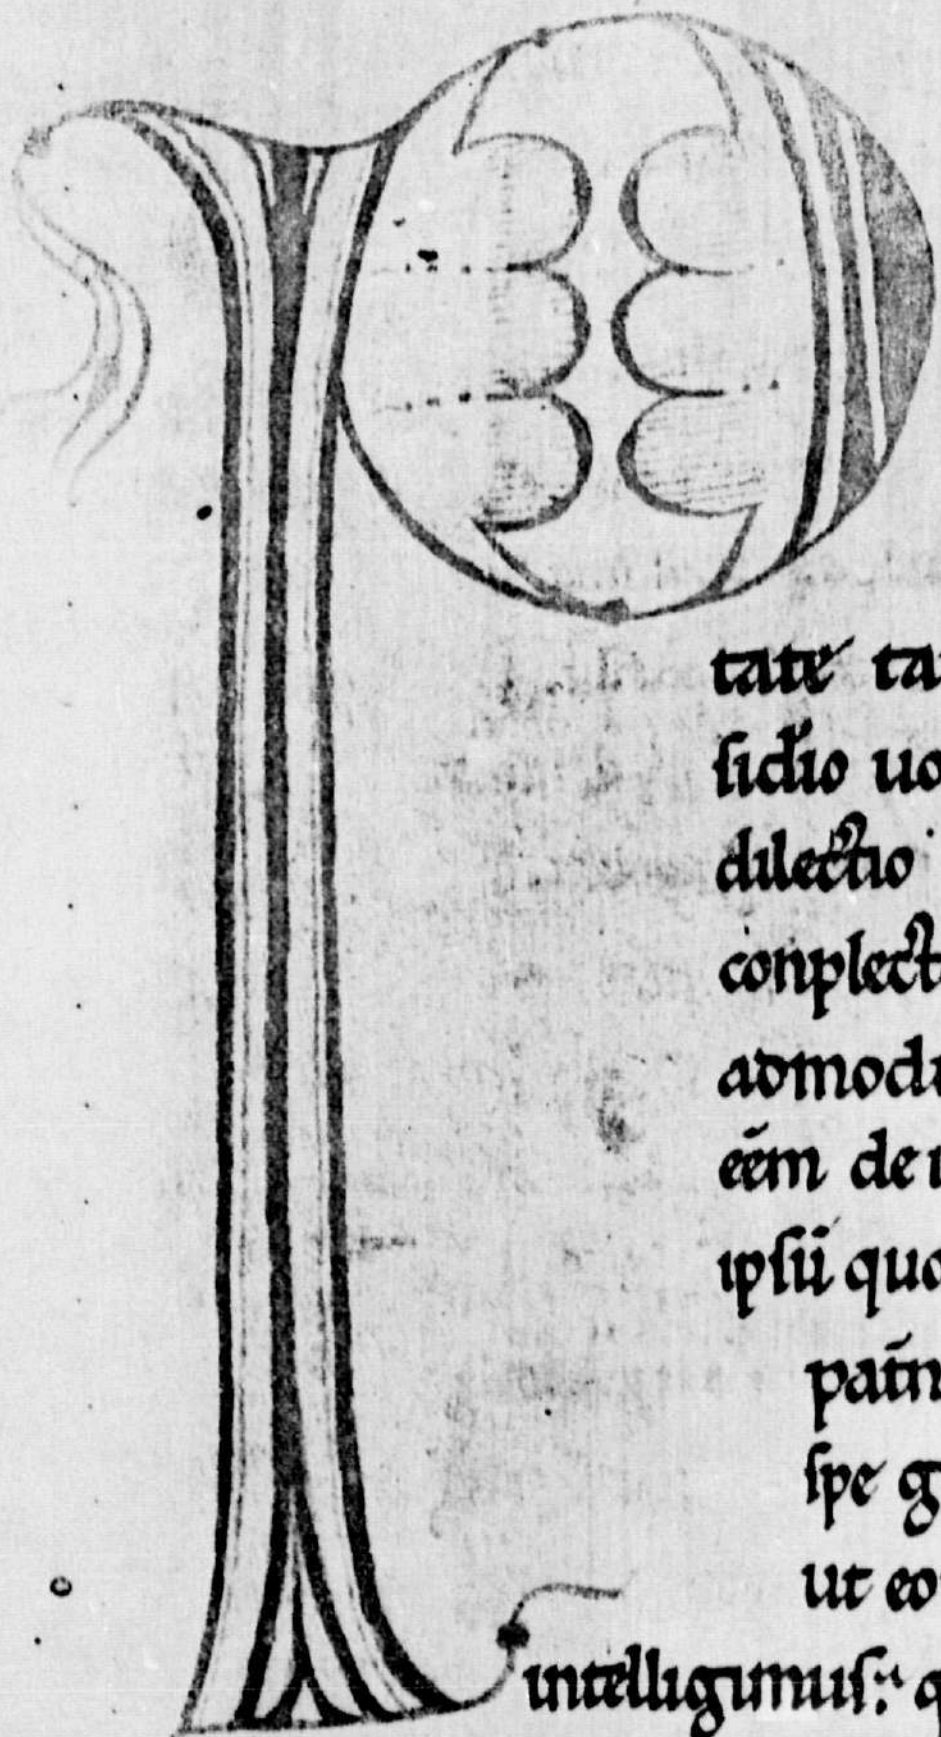 P
tate ta
ſidio uo
dilectio
conplect
admodu
eēm de
ipſū quo
patn̄
ſpe g
ut eo
intelligimuſ: q